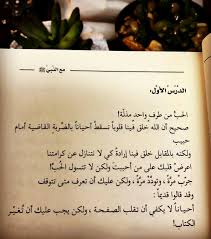 مع النبي ﷺ
الدّرسُ الأوّل:
الحُبُّ من طرفٍ واحدٍ مَذلّة!
صحيح أن الله خلق فينا قلوباً تسقط أحياناً بالضربة القاضية أمام
حبيب
ولكنه بالمقابل خلق فينا إرادة كي لا نتنازل عن كرامتنا
اعرضْ على من أحببت قلبك ولكن لا تتسول الحُبَّ!
جرّبْ مرّةً، وتودّدْ مرّةً، ولكن عليك أن تعرف متى تتوقف
وقد قالوا قديماً:
أحياناً لا يكفي أن تقلب الصفحة، ولكن يجب عليك أن تُغيّر
الكتاب!